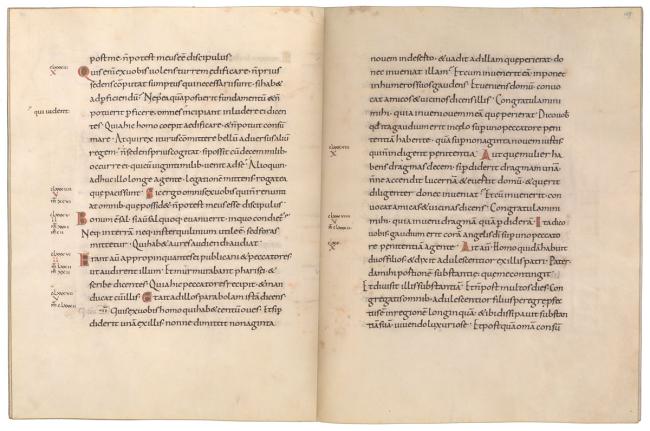 post me · n potest meus eē discipulus
Quis enī ex vobis volens turrem edificare · n prius
sedens computat sumptus qui necessarii sunt · si habe
ad pficiendū Ne p ea qua posuerit fundamentū & n
qui uident
potuerit pficere · omnes incipiant inludere ei dicen
tes · Quia hic homo coepit aedificare · & n potuit consū
mare · At qui rex iturus committere bellū adversus aliū
regem · n sedens prius cogitat · si possit cū decem milib
occurrere · qui cū viginti milib venit ad se · Alioquin
adhuc illo longe agente · legationē mittens rogat ea
que pacis sunt · Sic ergo omnis ex vobis qui n renunti
at omnib que possidet · n potest meus esse discipulus
Bonum ē sal · si aū sal quoq evanuerit · in quo condiet
Neq in terrā neq in sterquilinium utile ē · sed foras
mittetur · Qui hab& aures audiendi audiat
Erant aū appropinquantes ei publicani & peccatores
ut audirent illum · Et murmurabant pharisei &
scribe dicentes · Quia hic peccatores recipit · & man
ducat cū illis Et ait ad illos parabolam ista dicens
Quis ex vobis homo qui hab& centū oves · Et si p
diderit unā ex illis · nonne dimittit nonaginta
novem in deserto · & vadit ad illam que perierat · do
nec inveniat illam · Et cum invenerit eā · inponet
in humeros suos gaudens Et veniens domū · convo
cat amicos & vicinos dicens illis · Congratulamini
mihi · quia inveni ovem meā que perierat · Dico vob
qd ita gaudium erit in celo · sup uno peccatore peni
tentiā habente · quā sup nonaginta novem iustis
qui n indigent penitentia · Aut que mulier ha
bens dragmas decem · si pdiderit dragmam unā
nne accendit lucernā & evertit domū · & querit
diligenter · donec inveniat · Et cum invenerit · con
vocat amicas & vicinas dicens · Congratulamini
mihi · quia inveni dragmā quā pdiderā · Ita dico
vobis gaudium erit corā angelis di sup uno peccato
re penitentiā agente · Ait aū · Homo quidā habuit
duos filios · & dixit adulescentior ex illis patri · Pater
da mihi portionē substantie · que me contingit
Et divisit illis substantiā · Et n post multos dies · Con
gregatis omnib · adulescentior filius peregre pfec
tus ē in regionē longinquā · & ibi dissipavit substan
tiā suā · vivendo luxuriose · Et postquā omā consū